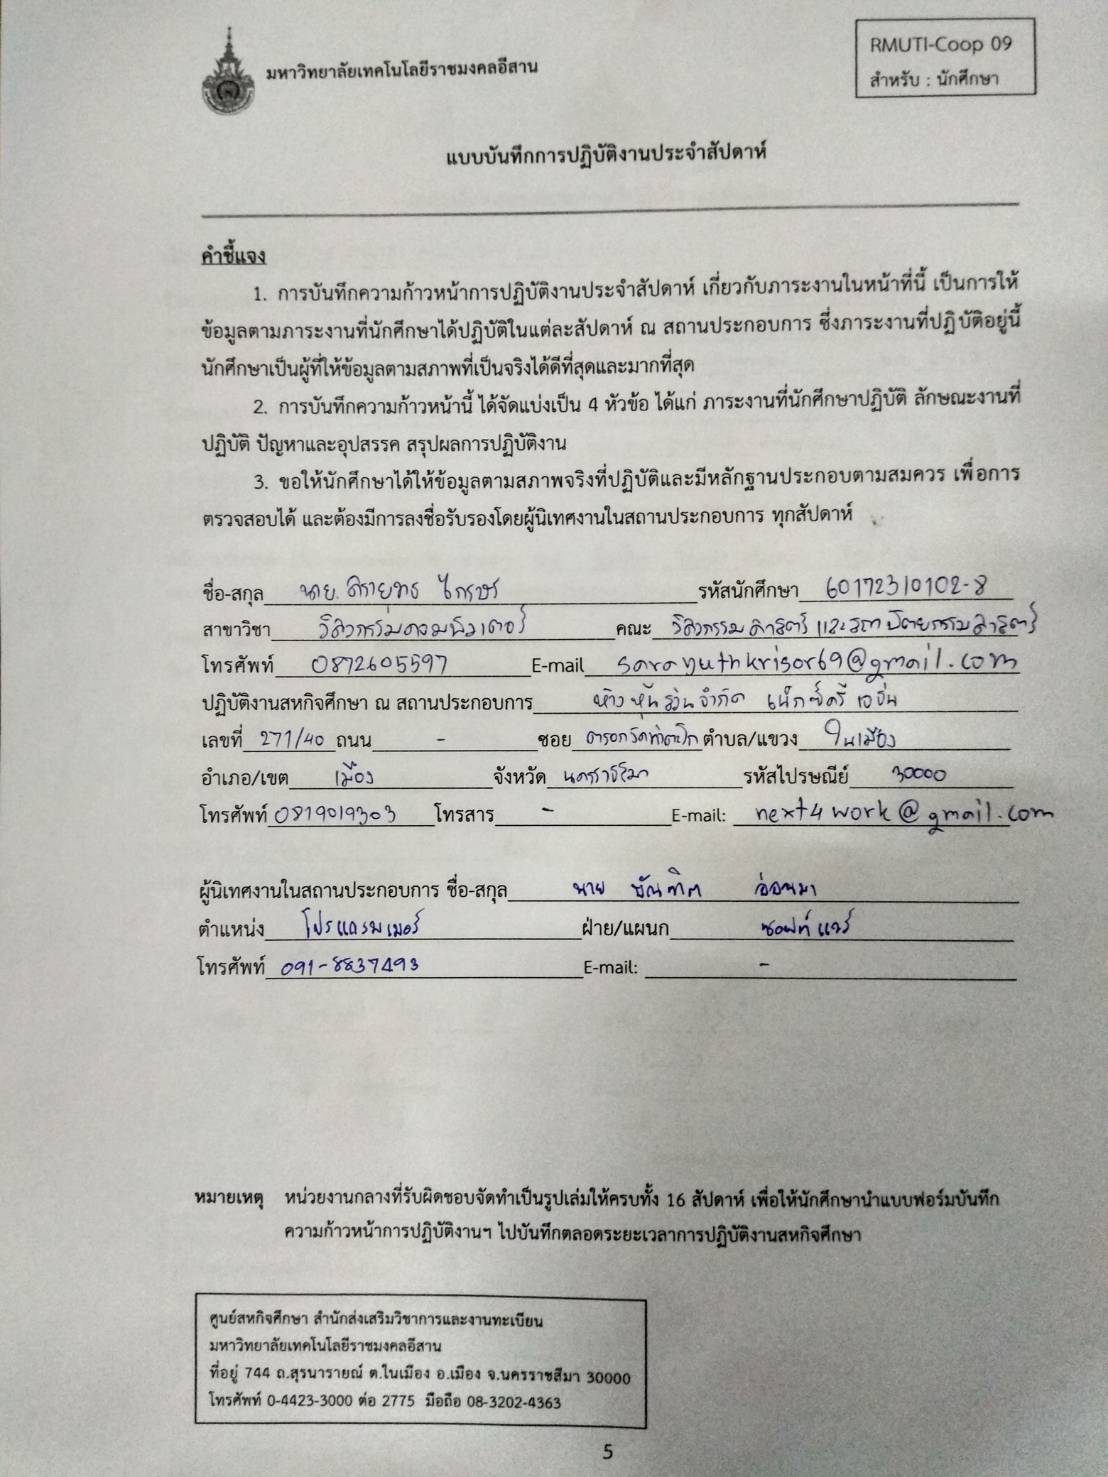 มหาวิทยาลัยเทคโนโลยีราชมงคลอีสาน
RMUTI-Coop 09
สำหรับ : นักศึกษา
แบบบันทึกการปฏิบัติงานประจำสัปดาห์
คำชี้แจง
1. การบันทึกความก้าวหน้าการปฏิบัติงานประจำสัปดาห์ เกี่ยวกับภาระงานในหน้าที่นี้ เป็นการให้
ข้อมูลตามภาระงานที่นักศึกษาได้ปฏิบัติในแต่ละสัปดาห์ ณ สถานประกอบการ ซึ่งภาระงานที่ปฏิบัติอยู่นี้
นักศึกษาเป็นผู้ที่ให้ข้อมูลตามสภาพที่เป็นจริงได้ดีที่สุดและมากที่สุด
2. การบันทึกความก้าวหน้านี้ ได้จัดแบ่งเป็น 4 หัวข้อ ได้แก่ ภาระงานที่นักศึกษาปฏิบัติ ลักษณะงานที่
ปฏิบัติ ปัญหาและอุปสรรค สรุปผลการปฏิบัติงาน
3. ขอให้นักศึกษาได้ให้ข้อมูลตามสภาพจริงที่ปฏิบัติและมีหลักฐานประกอบตามสมควร เพื่อการ
ตรวจสอบได้ และต้องมีการลงชื่อรับรองโดยผู้นิเทศงานในสถานประกอบการ ทุกสัปดาห์
ชื่อ-สกุล นาย. ศรายุทธ ไกรษร รหัสนักศึกษา 60172310102-8
สาขาวิชา วิศวกรรมคอมพิวเตอร์ คณะ วิศวกรรมศาสตร์และสถาปัตยกรรมศาสตร์
โทรศัพท์ 0872605597 E-mail sarayuthkrisor69@gmail.com
ปฏิบัติงานสหกิจศึกษา ณ สถานประกอบการ ห้างหุ้นส่วนจำกัด เน็กซ์ครีเอชั่น
เลขที่ 271/40 ถนน - ซอย ตรอกวัดท่าตะโก ตำบล/แขวง ในเมือง
อำเภอ/เขต เมือง จังหวัด นครราชสีมา รหัสไปรษณีย์ 30000
โทรศัพท์ 0819019303 โทรสาร - E-mail: next4work@gmail.com
ผู้นิเทศงานในสถานประกอบการ ชื่อ-สกุล นาย บัณฑิต อ่อนมา
ตำแหน่ง โปรแกรมเมอร์ ฝ่าย/แผนก ซอฟท์แวร์
โทรศัพท์ 091-8837493 E-mail: -
หมายเหตุ หน่วยงานกลางที่รับผิดชอบจัดทำเป็นรูปเล่มให้ครบทั้ง 16 สัปดาห์ เพื่อให้นักศึกษานำแบบฟอร์มบันทึก
ความก้าวหน้าการปฏิบัติงานฯ ไปบันทึกตลอดระยะเวลาการปฏิบัติงานสหกิจศึกษา
ศูนย์สหกิจศึกษา สำนักส่งเสริมวิชาการและงานทะเบียน
มหาวิทยาลัยเทคโนโลยีราชมงคลอีสาน
ที่อยู่ 744 ถ.สุรนารายณ์ ต.ในเมือง อ.เมือง จ.นครราชสีมา 30000
โทรศัพท์ 0-4423-3000 ต่อ 2775 มือถือ 08-3202-4363
5